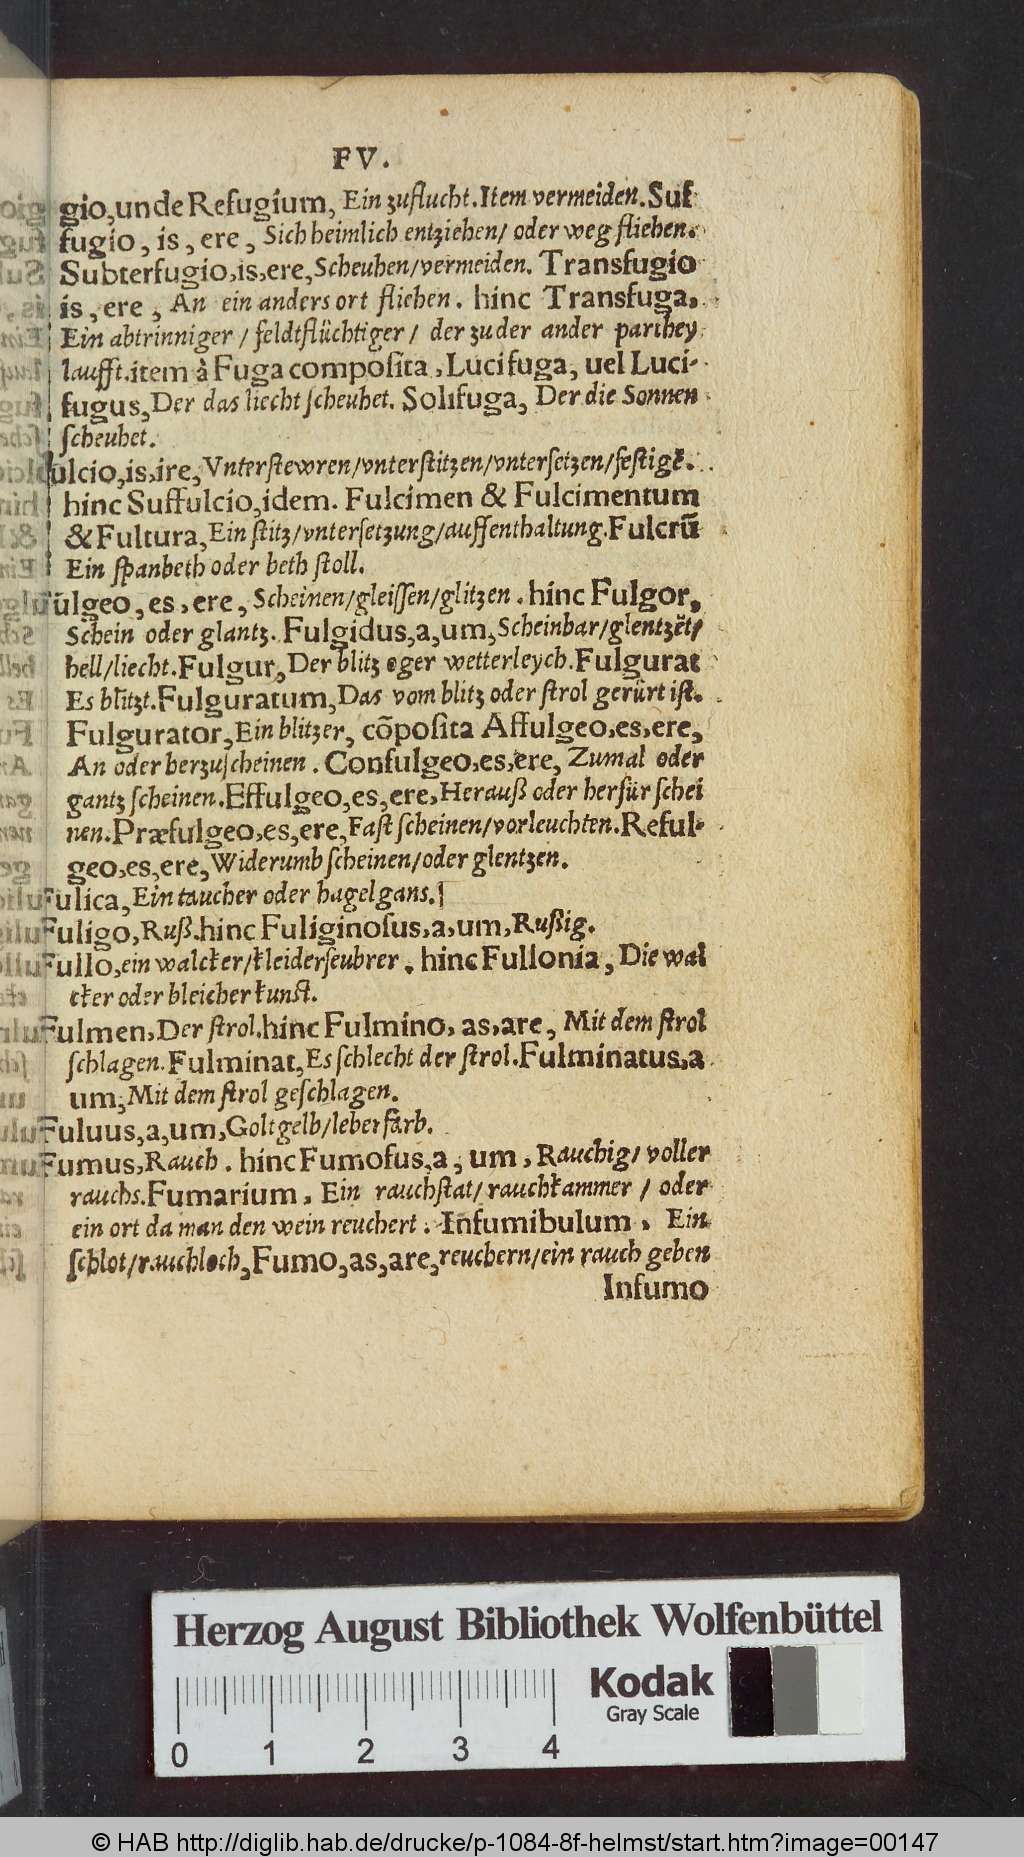 FV.
gio,unde Refugium, Ein zuflucht. Item vermeiden. Suf
fugio, is, ere, Sich heimlich entziehen/ oder weg fliehen.
Subterfugio,is,ere, Scheuhen/vermeiden. Transfugio
is, ere, An ein anders ort fliehen. hinc Transfuga,
Ein abtrinniger/ feldtflüchtiger/ der zu der ander parthey
laufft. item à Fuga composita, Lucifuga, uel Luci-
fugus, Der das liecht scheuhet. Solifuga, Der die Sonnen
scheuhet.
Fulcio,is,ire, Vnterstewren/vnterstitzen/vntersetzen/festigē.
hinc Suffulcio,idem. Fulcimen & Fulcimentum
& Fultura, Ein stitz/vntersetzung/auffenthaltung. Fulcrū
Ein spanbeth oder beth stoll.
Fulgeo, es, ere, Scheinen/gleissen/glitzen. hinc Fulgor,
Schein oder glantz. Fulgidus,a,um, Scheinbar/glentzēt/
hell/liecht. Fulgur, Der blitz oder wetterleych. Fulgurat
Es blitzt. Fulguratum, Das vom blitz oder strol gerürt ist.
Fulgurator, Ein blitzer, cōposita Affulgeo,es,ere,
An oder herzuscheinen. Confulgeo,es,ere, Zumal oder
gantz scheinen. Effulgeo,es,ere, Herauß oder herfür schei
nen. Præfulgeo,es,ere, Fast scheinen/vorleuchten. Reful-
geo,es,ere, Widerumb scheinen/oder glentzen.
Fulica, Ein taucher oder hagelgans.
Fuligo, Ruß. hinc Fuliginosus,a,um, Rußig.
Fullo, ein walcker/kleiderseubrer. hinc Fullonia, Die wal
cker oder bleicher kunst.
Fulmen, Der strol. hinc Fulmino, as,are, Mit dem strol
schlagen. Fulminat, Es schlecht der strol. Fulminatus,a
um, Mit dem strol geschlagen.
Fuluus,a,um, Goltgelb/leberfarb.
Fumus, Rauch. hinc Fumosus,a, um, Rauchig/ voller
rauchs. Fumarium, Ein rauchstat/rauchkammer/ oder
ein ort da man den wein reuchert. Infumibulum, Ein
schlot/rauchloch, Fumo,as,are, reuchern/ein rauch geben
Infumo
Herzog August Bibliothek Wolfenbüttel
Kodak
Gray Scale
0 1 2 3 4
© HAB http://diglib.hab.de/drucke/p-1084-8f-helmst/start.htm?image=00147